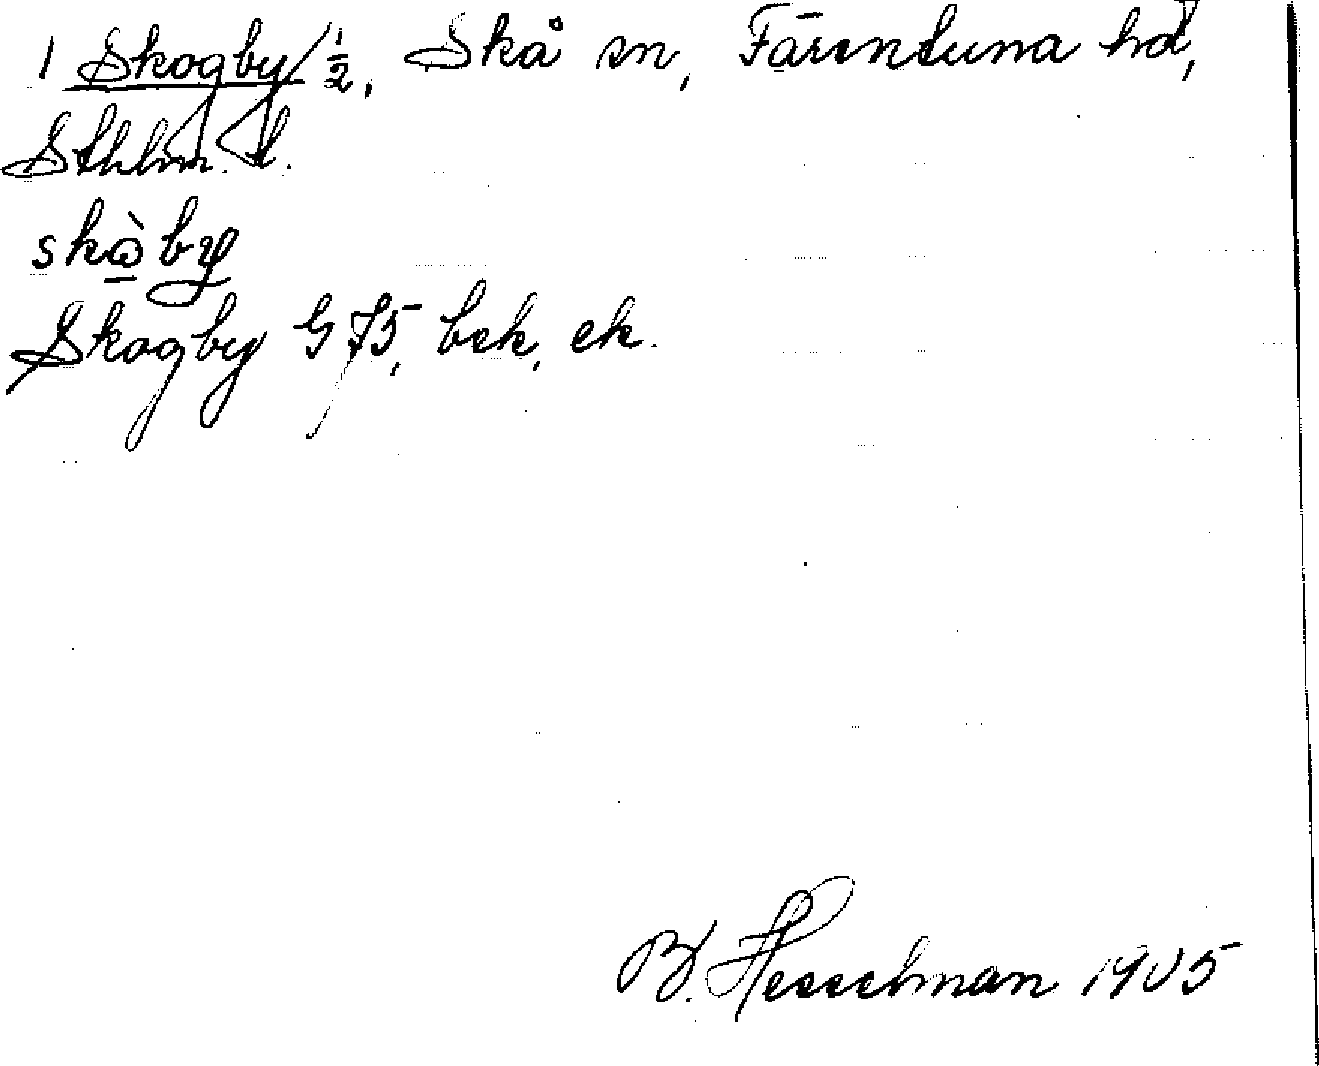 1 Skogby 1/2, Skå sn, Färentuna hd,
Sthlm. l.
skὼby
Skogby G 75, bek, ek.
B. Hesselman 1905